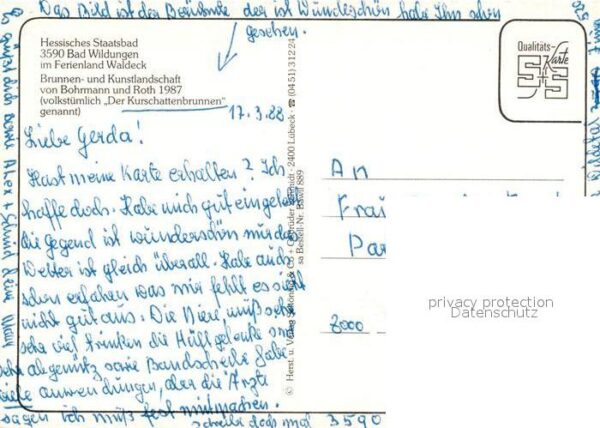 Das Bild ist der Berühmte der ist Wunderschön habe ihn schon
gesehen.
Hessisches Staatsbad
3590 Bad Wildungen
im Ferienland Waldeck
Brunnen- und Kunstlandschaft
von Bohrmann und Roth 1987
(volkstümlich „Der Kurschattenbrunnen"
genannt)
17.3.88
Liebe Gerda!
Hast meine Karte erhalten? Ich
hoffe doch. Habe mich gut eingelebt
die Gegend ist wunderschön nur das
Wetter ist gleich überall. Habe auch
schon erfahren was mir fehlt es sieht
nicht gut aus. Die Niere, muß sehr
sehr viel trinken die Hüftgelenke sind
sehr abgenütz sowie Bandscheibe habe
viele anwendungen, aber die Ärzte
sagen ich muß fest mitmachen.
schreibe doch mal 3590
Es grüßt dich Deine
Qualitäts-
Karte
S+S
© Herst. u. Verlag Schöning & Co + Gebrüder Schmidt · 2400 Lübeck · ☎ (0451) 31224
An
Frau
2000
privacy protection
Datenschutz